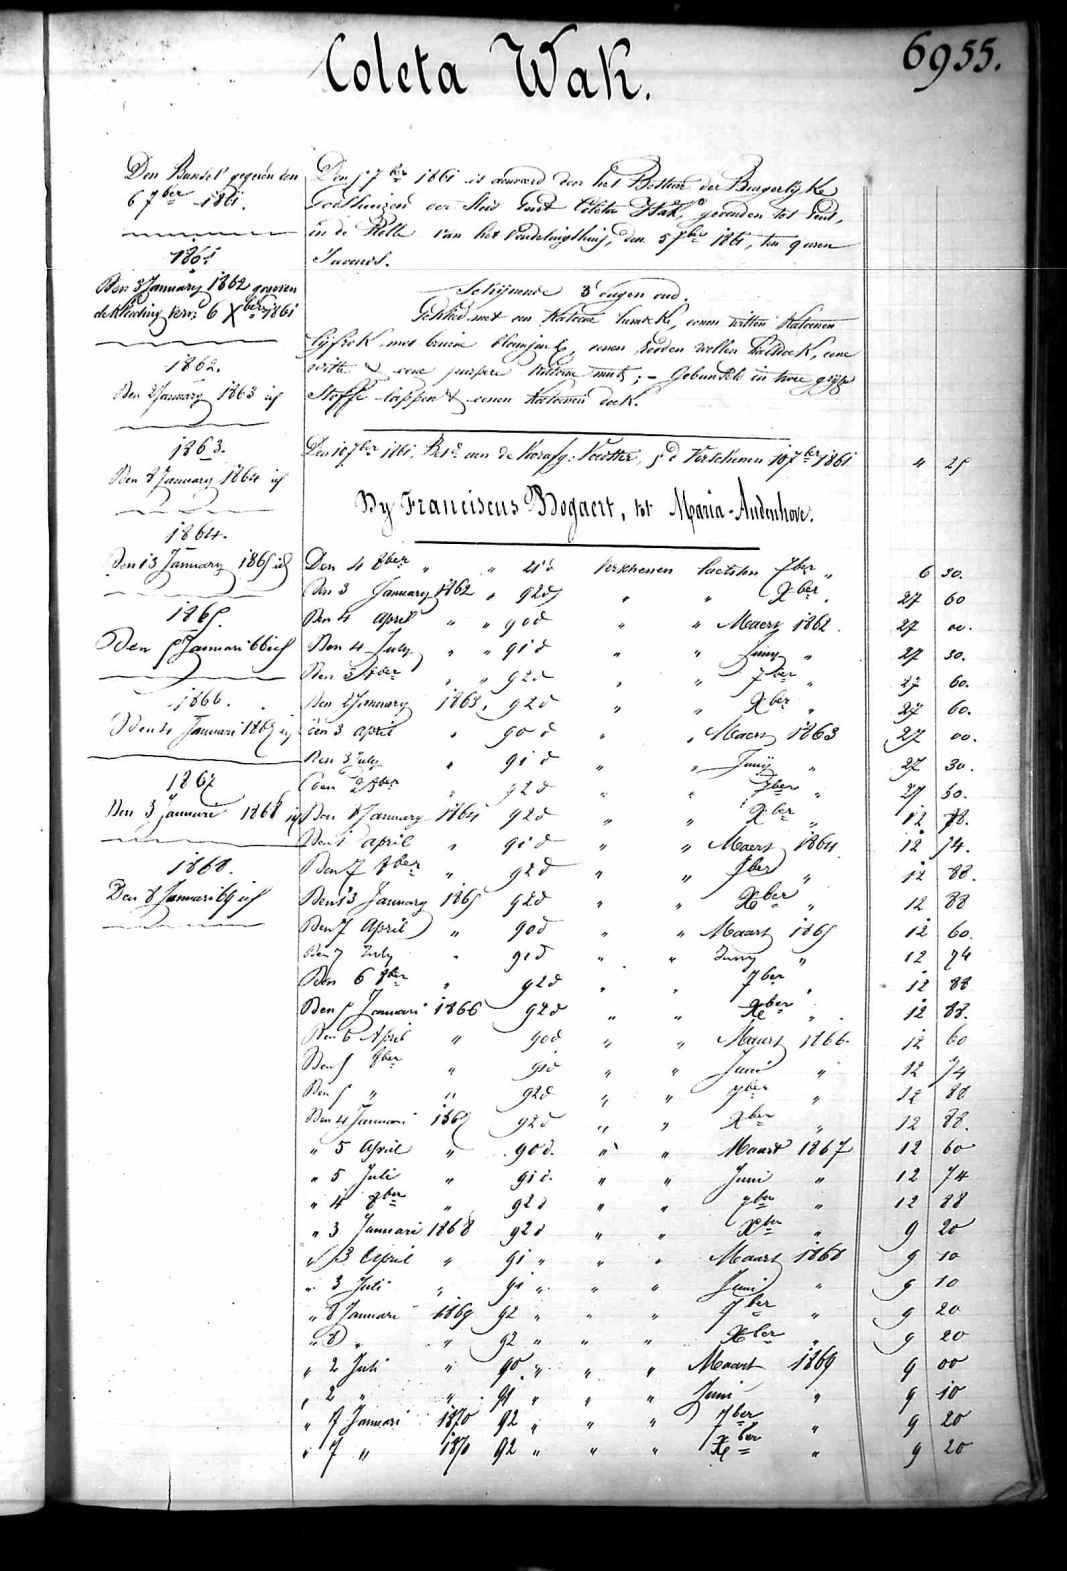 Coleta Wak.
6955.
Den Bundel gegeven den
6 7ber 1861.
1861
Den 3 January 1862 gegeven
de kleeding verv: 6 Xber 1861
1862.
Den 2 January 1863 id
1863.
Den 8 January 1864 id
1864.
Den 13 January 1865 id
1865.
Den 5 Januari 66 id
1866.
Den 4 Januari 1867 id
1867
Den 3 Januari 1868 id
1868.
Den 8 Januari 69 id
Den 5 7ber 1861 is aenveerd door het Bestier der Burgerlyke
Godshuizen der Stad Gent Coleta Wak, gevonden tot Gent,
in de Rolle van het Vondelingshuis, den 5 7ber 1861, ten 9 uren
S'avonds.
Schijnende 3 dagen oud.
Gekleed met een katoene hemdeke, eenen witten katoenen
lijfrok met bruine bloemjens, eenen rooden wollen halsdoek, eene
witte & eene purpere katoene muts; – Gebundeld in twee grijze
Stoffe lappen & eenen katoenen doek.
Den 10 7ber 1861. Best. aen de Voedster, 5 d Verschenen 10 7ber 1861 " 25
By Franciscus Bogaert, tot Maria-Audenhove.
Den 4 8ber " " 21 d Verschenen laetsten 7ber " 6 30.
Den 3 January 1862 " 92 d " " Xber " 27 60
Den 4 April " " 90 d " " Maerz 1862. 27 00.
Den 4 July " " 91 d " " Juny " 27 30.
Den 3 8ber " " 92 d " " 7ber " 27 60.
Den 2 January 1863. 92 d " " Xber " 27 60.
Den 3 April " 90 d " Maerz 1863 27 00.
Den 3 July " 91 d " " Junij " 27 30.
Den 2 8ber " 92 d " " 7ber " 27 60.
Den 8 January 1864 92 d " " Xber " 12 88.
Den 1 April " 91 d " " Maerz 1864 12 74.
Den 7 8ber " 92 d " " 7ber " 12 88.
Den 13 January 1865 92 d " " Xber " 12 88
Den 7 April " 90 d " " Maart 1865 12 60.
Den 7 July " 91 d " " Juny " 12 74
Den 6 8ber " 92 d " " 7ber " 12 88
Den 5 Januari 1866 92 d " " Xber " 12 88.
Den 6 April " 90 d " " Maart 1866. 12 60
Den 5 8ber " 91 d " " Juni " 12 74
Den 5 " " 92 d " " 7ber " 12 88
Den 4 Januari 1867 92 d " " Xber " 12 88.
" 5 April " 90 d. " " Maart 1867 12 60
" 5 Juli " 91 d. " " Juni " 12 74
" 4 8ber " 92 d " " 7ber " 12 88
" 3 Januari 1868 92 d " " Xber " 9 20
" 3 April " 91 " " " Maart 1868 9 10
" 3 Juli " 91 " " " Juni " 9 10
" 8 Januari 1869 92 " " " 7ber " 9 20
" 8 " " 92 " " " Xber " 9 20
" 2 Juli " 90 " " " Maart 1869 9 00
" 2 " " 91 " " " Juni " 9 10
" 7 Januari 1870 92 " " " 7ber " 9 20
" 7 " 1870 92 " " " Xber " 9 20